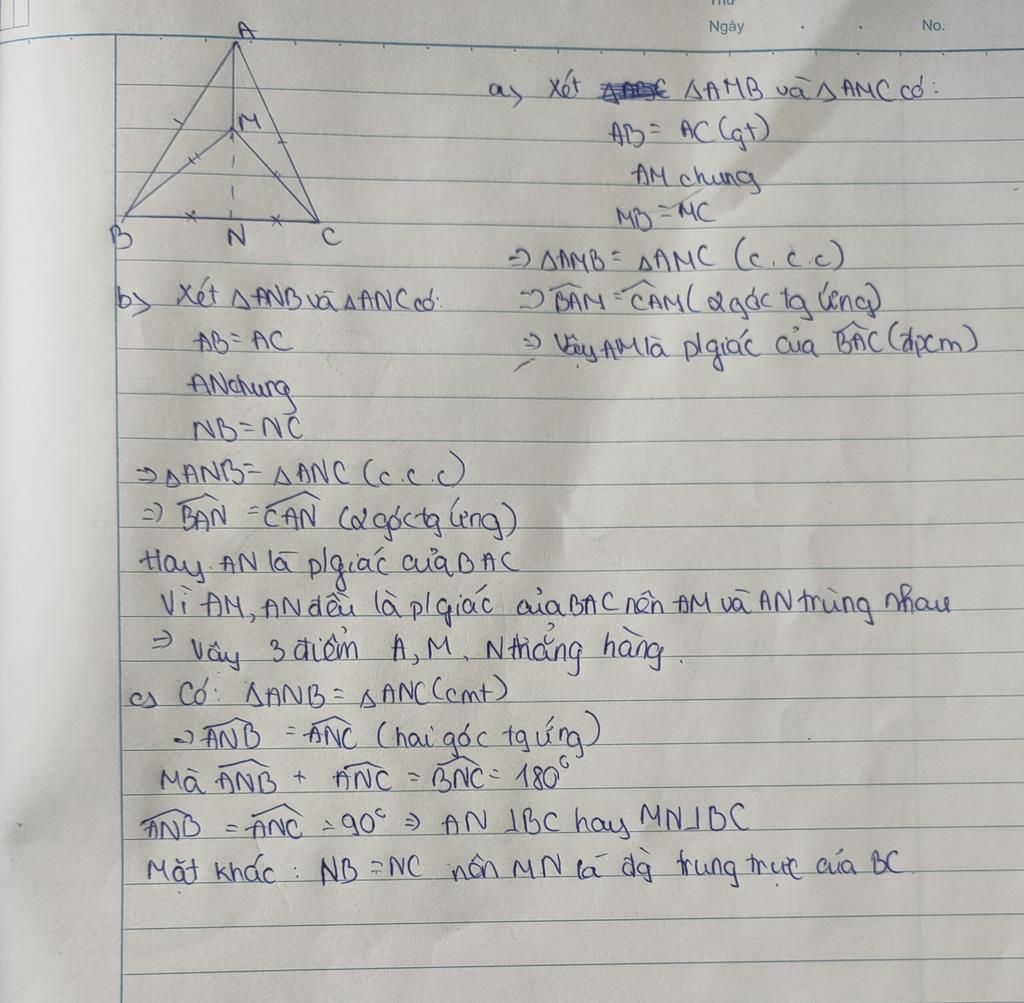 Thứ
Ngày . . No.
A
M
B N C
a) Xét ΔAMB và ΔAMC có:
AB = AC (gt)
AM chung
MB = MC
=> ΔAMB = ΔAMC (c.c.c)
=> BAM = CAM (2 góc tg ứng)
=> Vậy AM là p/giác của BAC (đpcm)
b) Xét ΔANB và ΔANC có:
AB = AC
AN chung
NB = NC
=> ΔANB = ΔANC (c.c.c)
=> BAN = CAN (2 góc tg ứng)
Hay AN là p/giác của BAC
Vì AM, AN đều là p/giác của BAC nên AM và AN trùng nhau
=> Vậy 3 điểm A, M, N thẳng hàng.
c) Có: ΔANB = ΔANC (cmt)
=> ANB = ANC (hai góc tg ứng)
Mà ANB + ANC = BNC = 180°
ANB = ANC = 90° => AN ⊥ BC hay MN ⊥ BC
Mặt khác : NB = NC nên MN là đg trung trực của BC